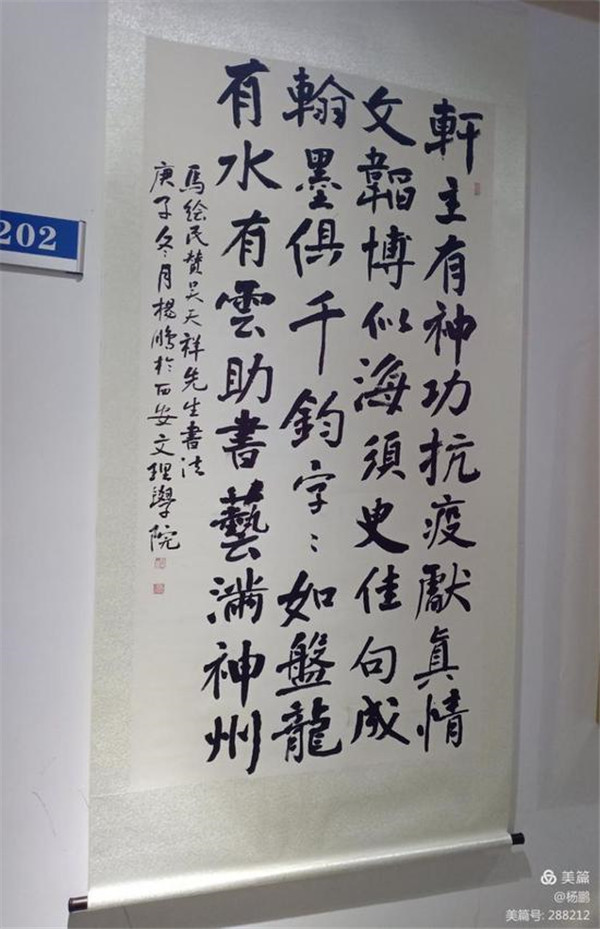 軒主有神功抗疫獻真情
文韜博似海須臾佳句成
翰墨俱千鈞字〻如盤龍
有水有雲助書藝滿神州
馬绘民贊吴天祥先生書法
庚子冬月楊鵬於西安文理學院
202
美篇
@杨鹏
美篇号: 288212